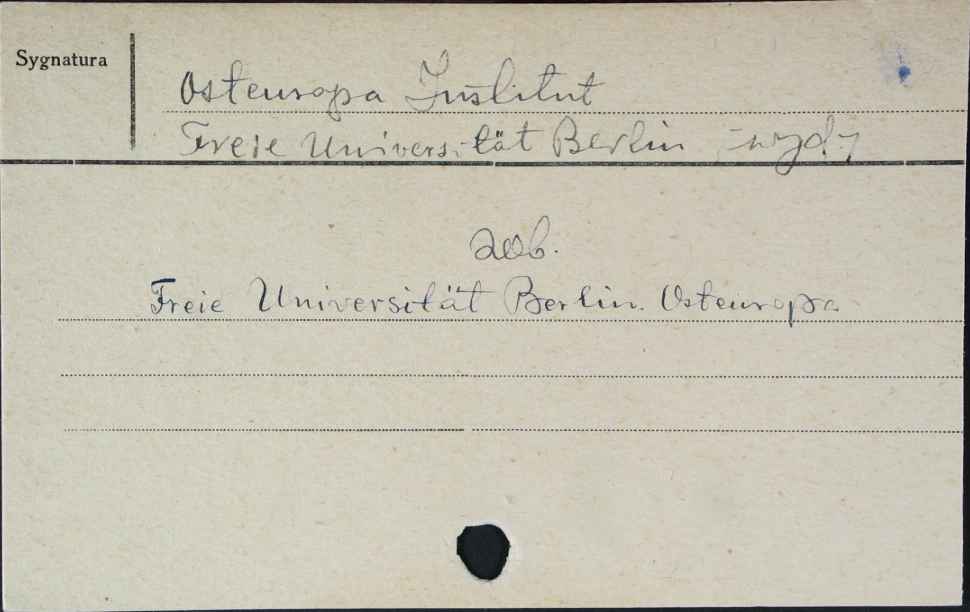 Sygnatura
Osteuropa Institut
Freie Universität Berlin -wyd-
zob.
Freie Universität Berlin. Osteuropa